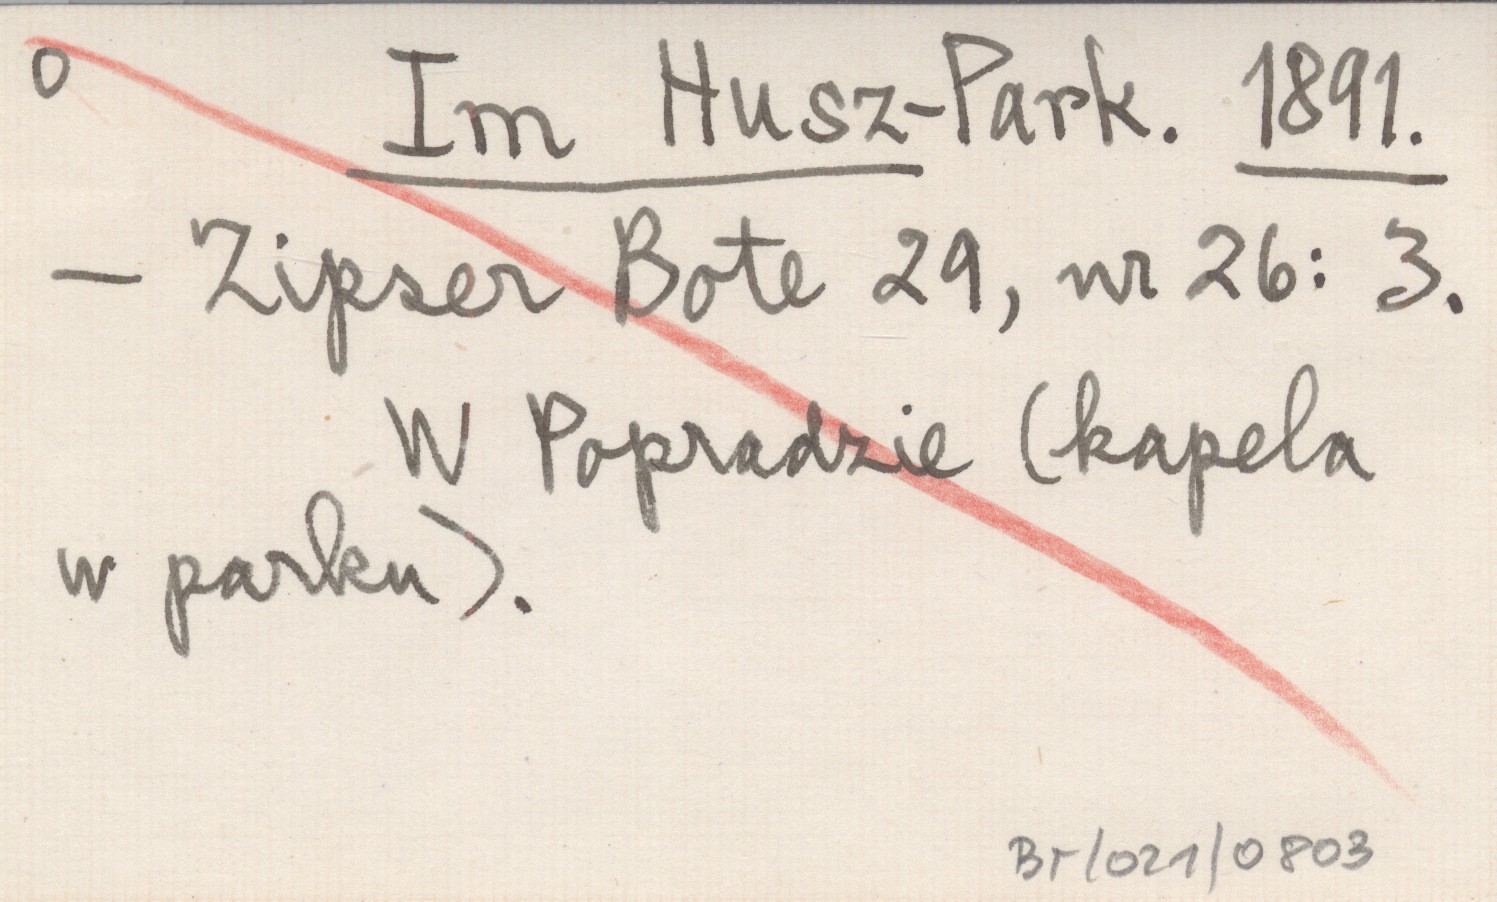 o Im Husz-Park. 1891.
— Zipser Bote 29, nr 26: 3.
W Popradzie (kapela
w parku).
Br/021/0803